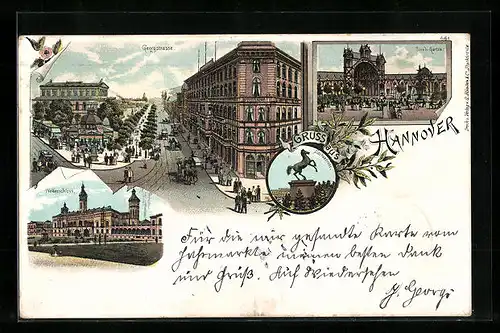 Georgstrasse
GRUSS AUS
HANNOVER
Welfenschloss
Für die mir gesandte Karte vom
Jahrmarkt meinen besten Dank
und Gruß. Auf Wiedersehen
Georg